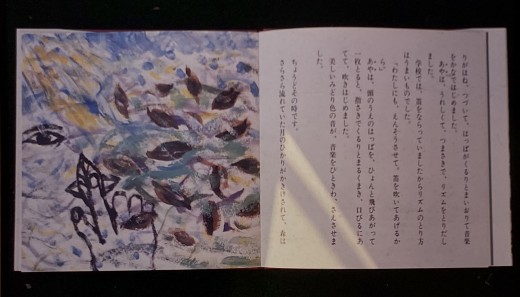 りがはむ、つづいて、はっぱがくるりとまいおりて音楽
をかなではじめました。
あやは、うれしくて、つまさきで、リズムをとりだし
ました。
学校では、笛をならっていましたからリズムのとり方
はうまいものでした。
「わたしにも、えんそうさせて。笛を吹いてあげるか
ら」
あやは、頭のうえのはっぱを、ひょんと飛びあがって
一枚とると、指さきでくるりとまるくまき、口びるにあ
てて、吹きはじめました。
美しいみどり色の音が、音楽をひときわ、さえさせま
した。
ちょうどその時です。
さらさら流れていた月のひかりがかきけされて、森は